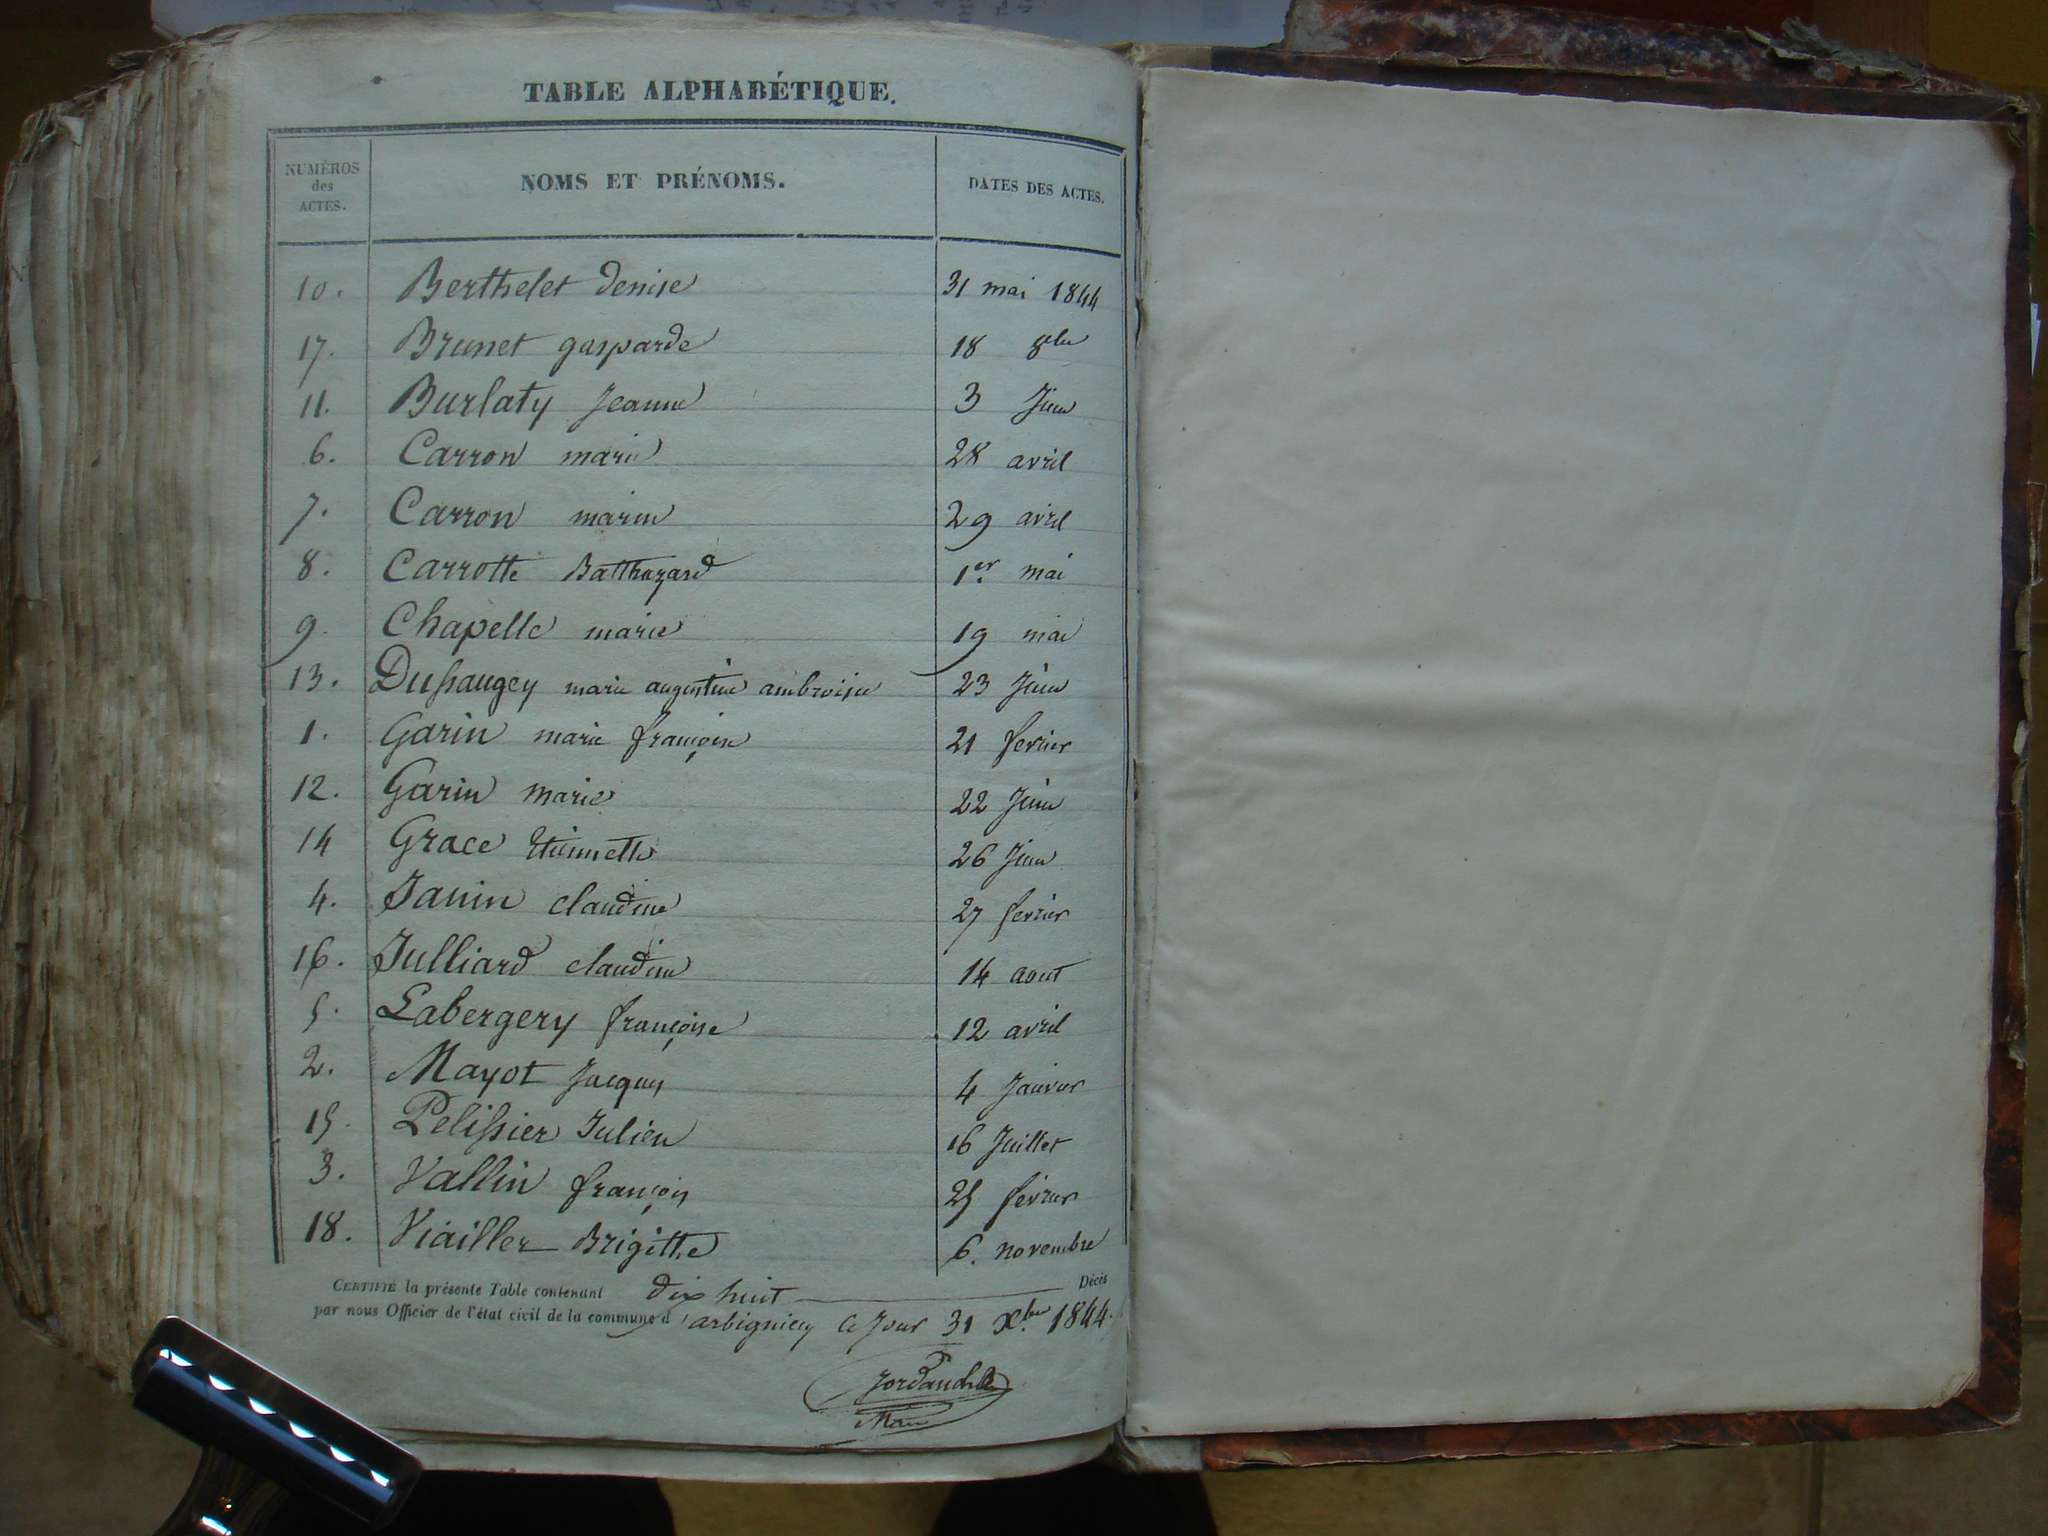 TABLE ALPHABÉTIQUE.
NUMÉROS des ACTES. NOMS ET PRÉNOMS. DATES DES ACTES.
10. Berthelet Denise 31 mai 1844
17. Brunet gasparde 18 8bre
11. Burlaty Jeanne 3 Juin
6. Carron marie 28 avril
7. Carron marie 29 avril
8. Carrotte Balthazard 1er mai
9. Chapelle marie 19 mai
13. Dussaugey marie augustine ambroisine 23 Juin
1. Garin marie françoise 21 fevrier
12. Garin Marie 22 Juin
14 Grace Etiennette 26 Juin
4. Janin claudine 27 fevrier
16. Julliard claudine 14 aout
5. Labergery françoise 12 avril
2. Mayot Jacques 4 Janvier
15. Pelissier Julien 16 Juillet
3. Vallin françois 25 fevrier
18. Viailler Brigitte 6. novembre
CERTIFIÉ la présente Table contenant dix huit Décès
par nous Officier de l'état civil de la commune d'arbignieu ce Jour 31 Xbre 1844.